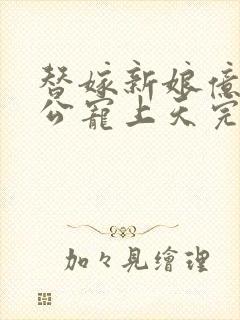 替嫁新娘億
公寵上天完
加々見繪理